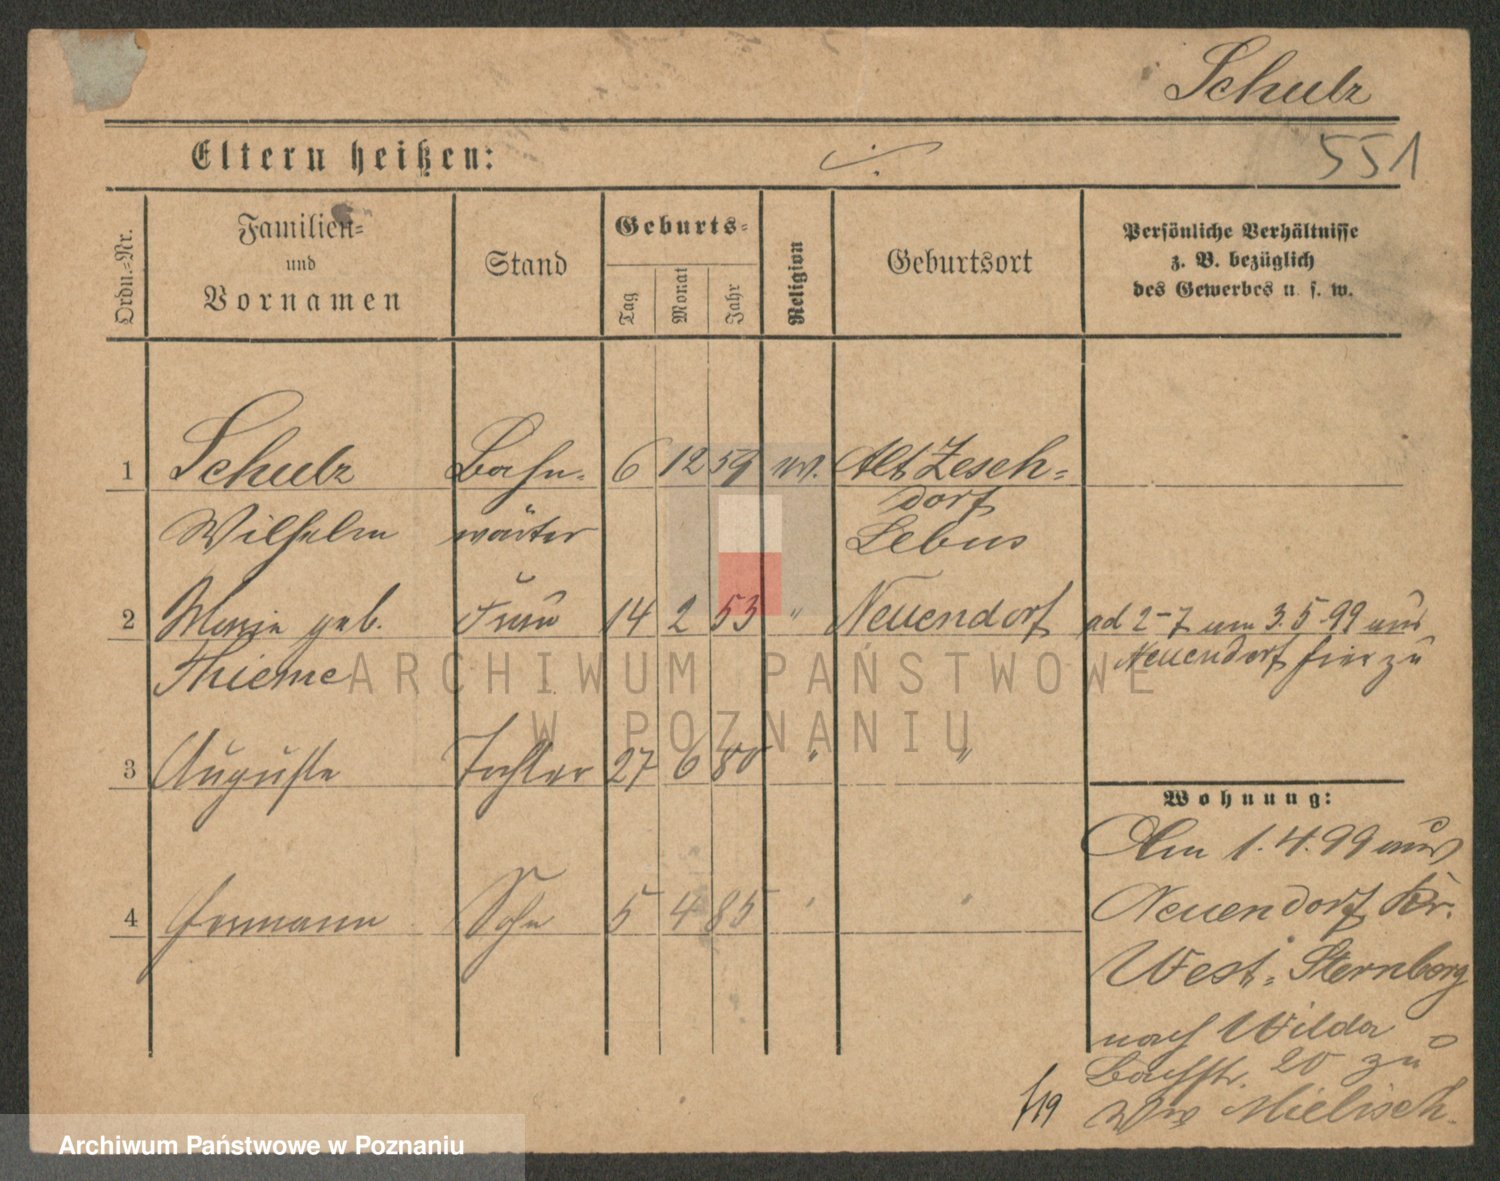 Schulz
551
Eltern heißen: ./.
Ordn.-Nr.
Familien-
und
Vornamen
Stand
Geburts-
Tag
Monat
Jahr
Religion
Geburtsort
Persönliche Verhältnisse
z. B. bezüglich
des Gewerbes u. s. w.
1 Schulz Bahn- 6 12 59 ev. Alt Zesch-
dorf
Wilhelm wärter Lebus
2 Marie geb. Frau 14 2 53 " Neuendorf ad 2-7 am 3.5.99 aus
Thieme Neuendorf hier zu
3 Auguste Tochter 27 6 80 " "
Wohnung:
Am 1.4.99 aus
4 Hermann Sohn 5 4 85 " " Neuendorf Kr.
West-Sternberg
nach Wilda
Bachstr. 20 zu
Ww Mielisch.
f19
ARCHIWUM PAŃSTWOWE
W POZNANIU
Archiwum Państwowe w Poznaniu